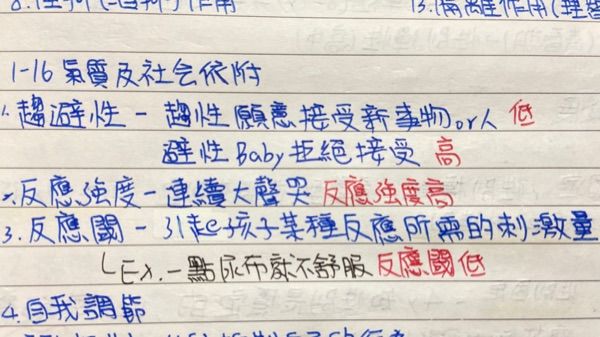 1-16 氣質及社会依附
1. 趨避性 - 趨性願意接受新事物or人 低
避性Baby拒絕接受 高
2. 反應強度 - 連續大聲哭 反應強度高
3. 反應閾 - 引起孩子某種反應所需的刺激量
Ex. 一點尿布就不舒服 反應閾低
4. 自我調節